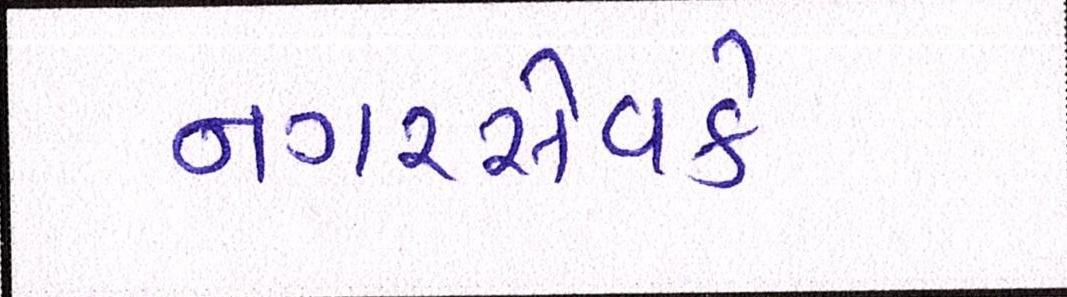 નગરસેવકે